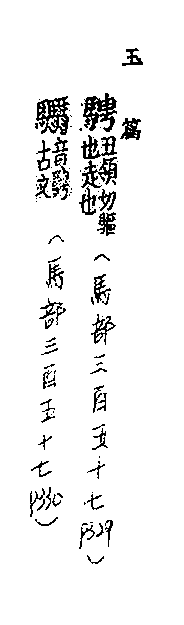 玉篇
騁 丑領切驅也走也（馬部三百五十七 P329）
音騁古文（馬部三百五十七 P330）